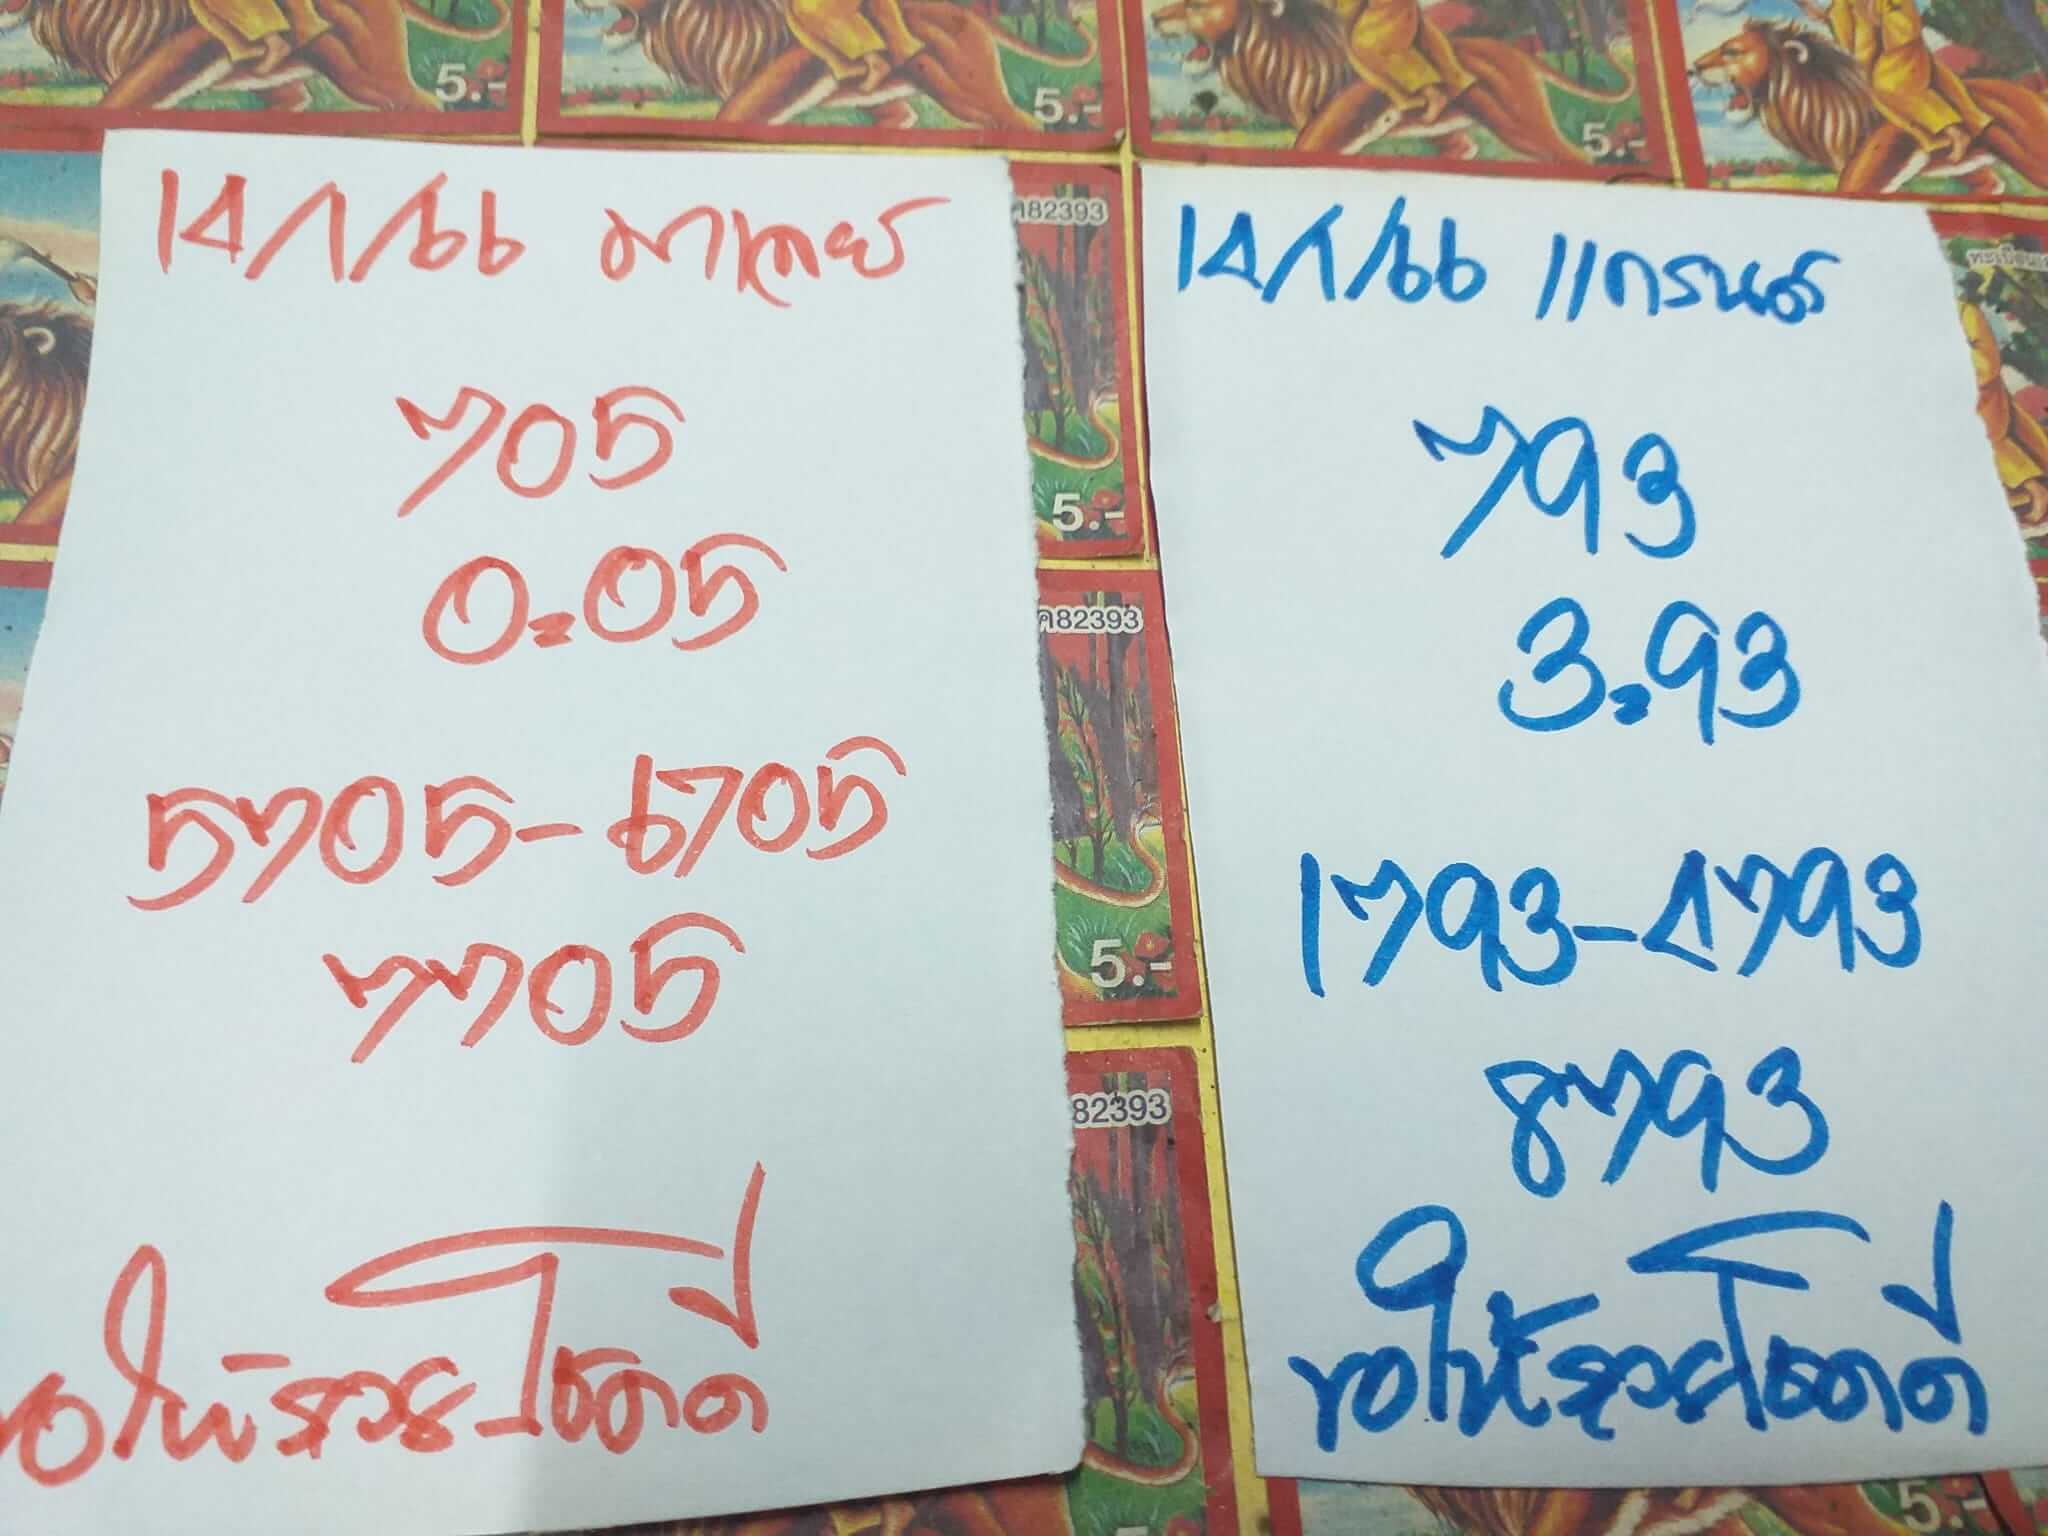 14/1/66 มาเลย์
705
0=05
5705-6705
7705
ขอให้รวย โชคดี
14/1/66 แกรนด์
793
3=93
1793-4793
8793
ขอให้รวยโชคดี
5.-
5.-
5.-
82393
5.-
ค82393
5.-
82393
5.-